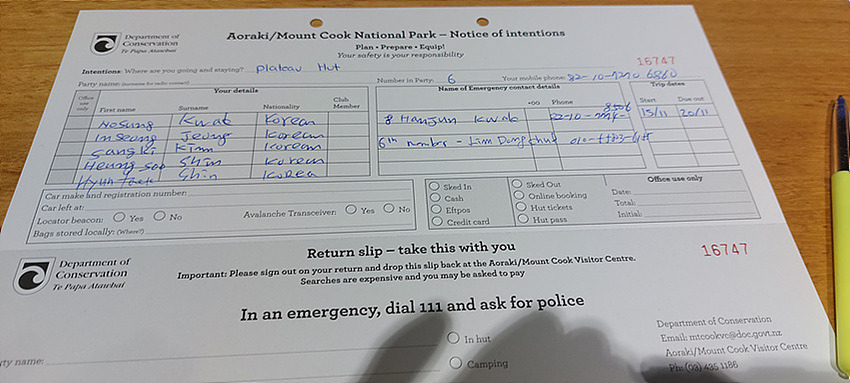 Department of
Conservation
Te Papa Atawhai
Aoraki/Mount Cook National Park – Notice of intentions
Plan • Prepare • Equip!
Your safety is your responsibility
16747
Intentions: Where are you going and staying? Plateau Hut
Party name: (surname for radio contact) Number in Party: 6 Your mobile phone: 82-10-7210 6860
Office use only
Your details
Name of Emergency contact details
Trip dates
First name Surname Nationality Club Member Phone Start Due out
Nosung Kwak Korean Hanjun Kwak 15/11 20/11
Inseong Jeong Korean 6th number -
Sangki Kim Korean
Heung-soo Shin Korean
Shin Korea
Car make and registration number:
Car left at:
Locator beacon: Yes No Avalanche Transceiver: Yes No
Bags stored locally: (Where?)
Sked In Sked Out Office use only
Cash Online booking Date:
Eftpos Hut tickets Total:
Credit card Hut pass Initial:
Return slip – take this with you
16747
Department of
Conservation
Te Papa Atawhai
Important: Please sign out on your return and drop this slip back at the Aoraki/Mount Cook Visitor Centre.
Searches are expensive and you may be asked to pay
In an emergency, dial 111 and ask for police
In hut
Camping
ty name:
Department of Conservation
Email: mtcookvc@doc.govt.nz
Aoraki/Mount Cook Visitor Centre
Ph: (03) 435 1186